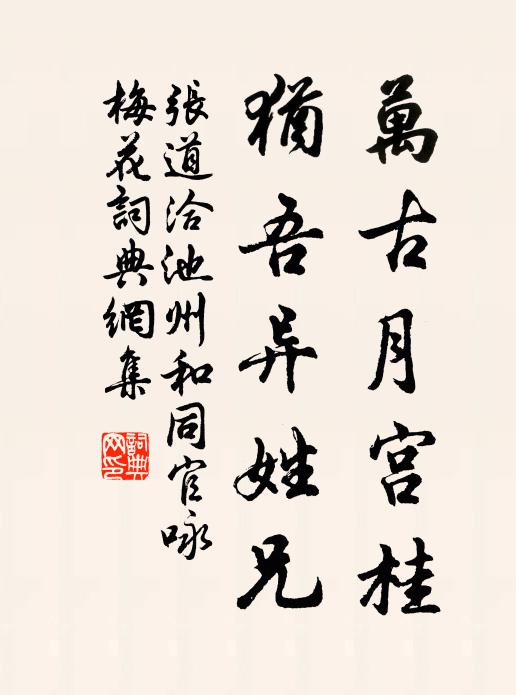 萬古月宫桂
猶吾异姓兄
張道洽池州和同官咏
梅花詞典網集
詞典
网印